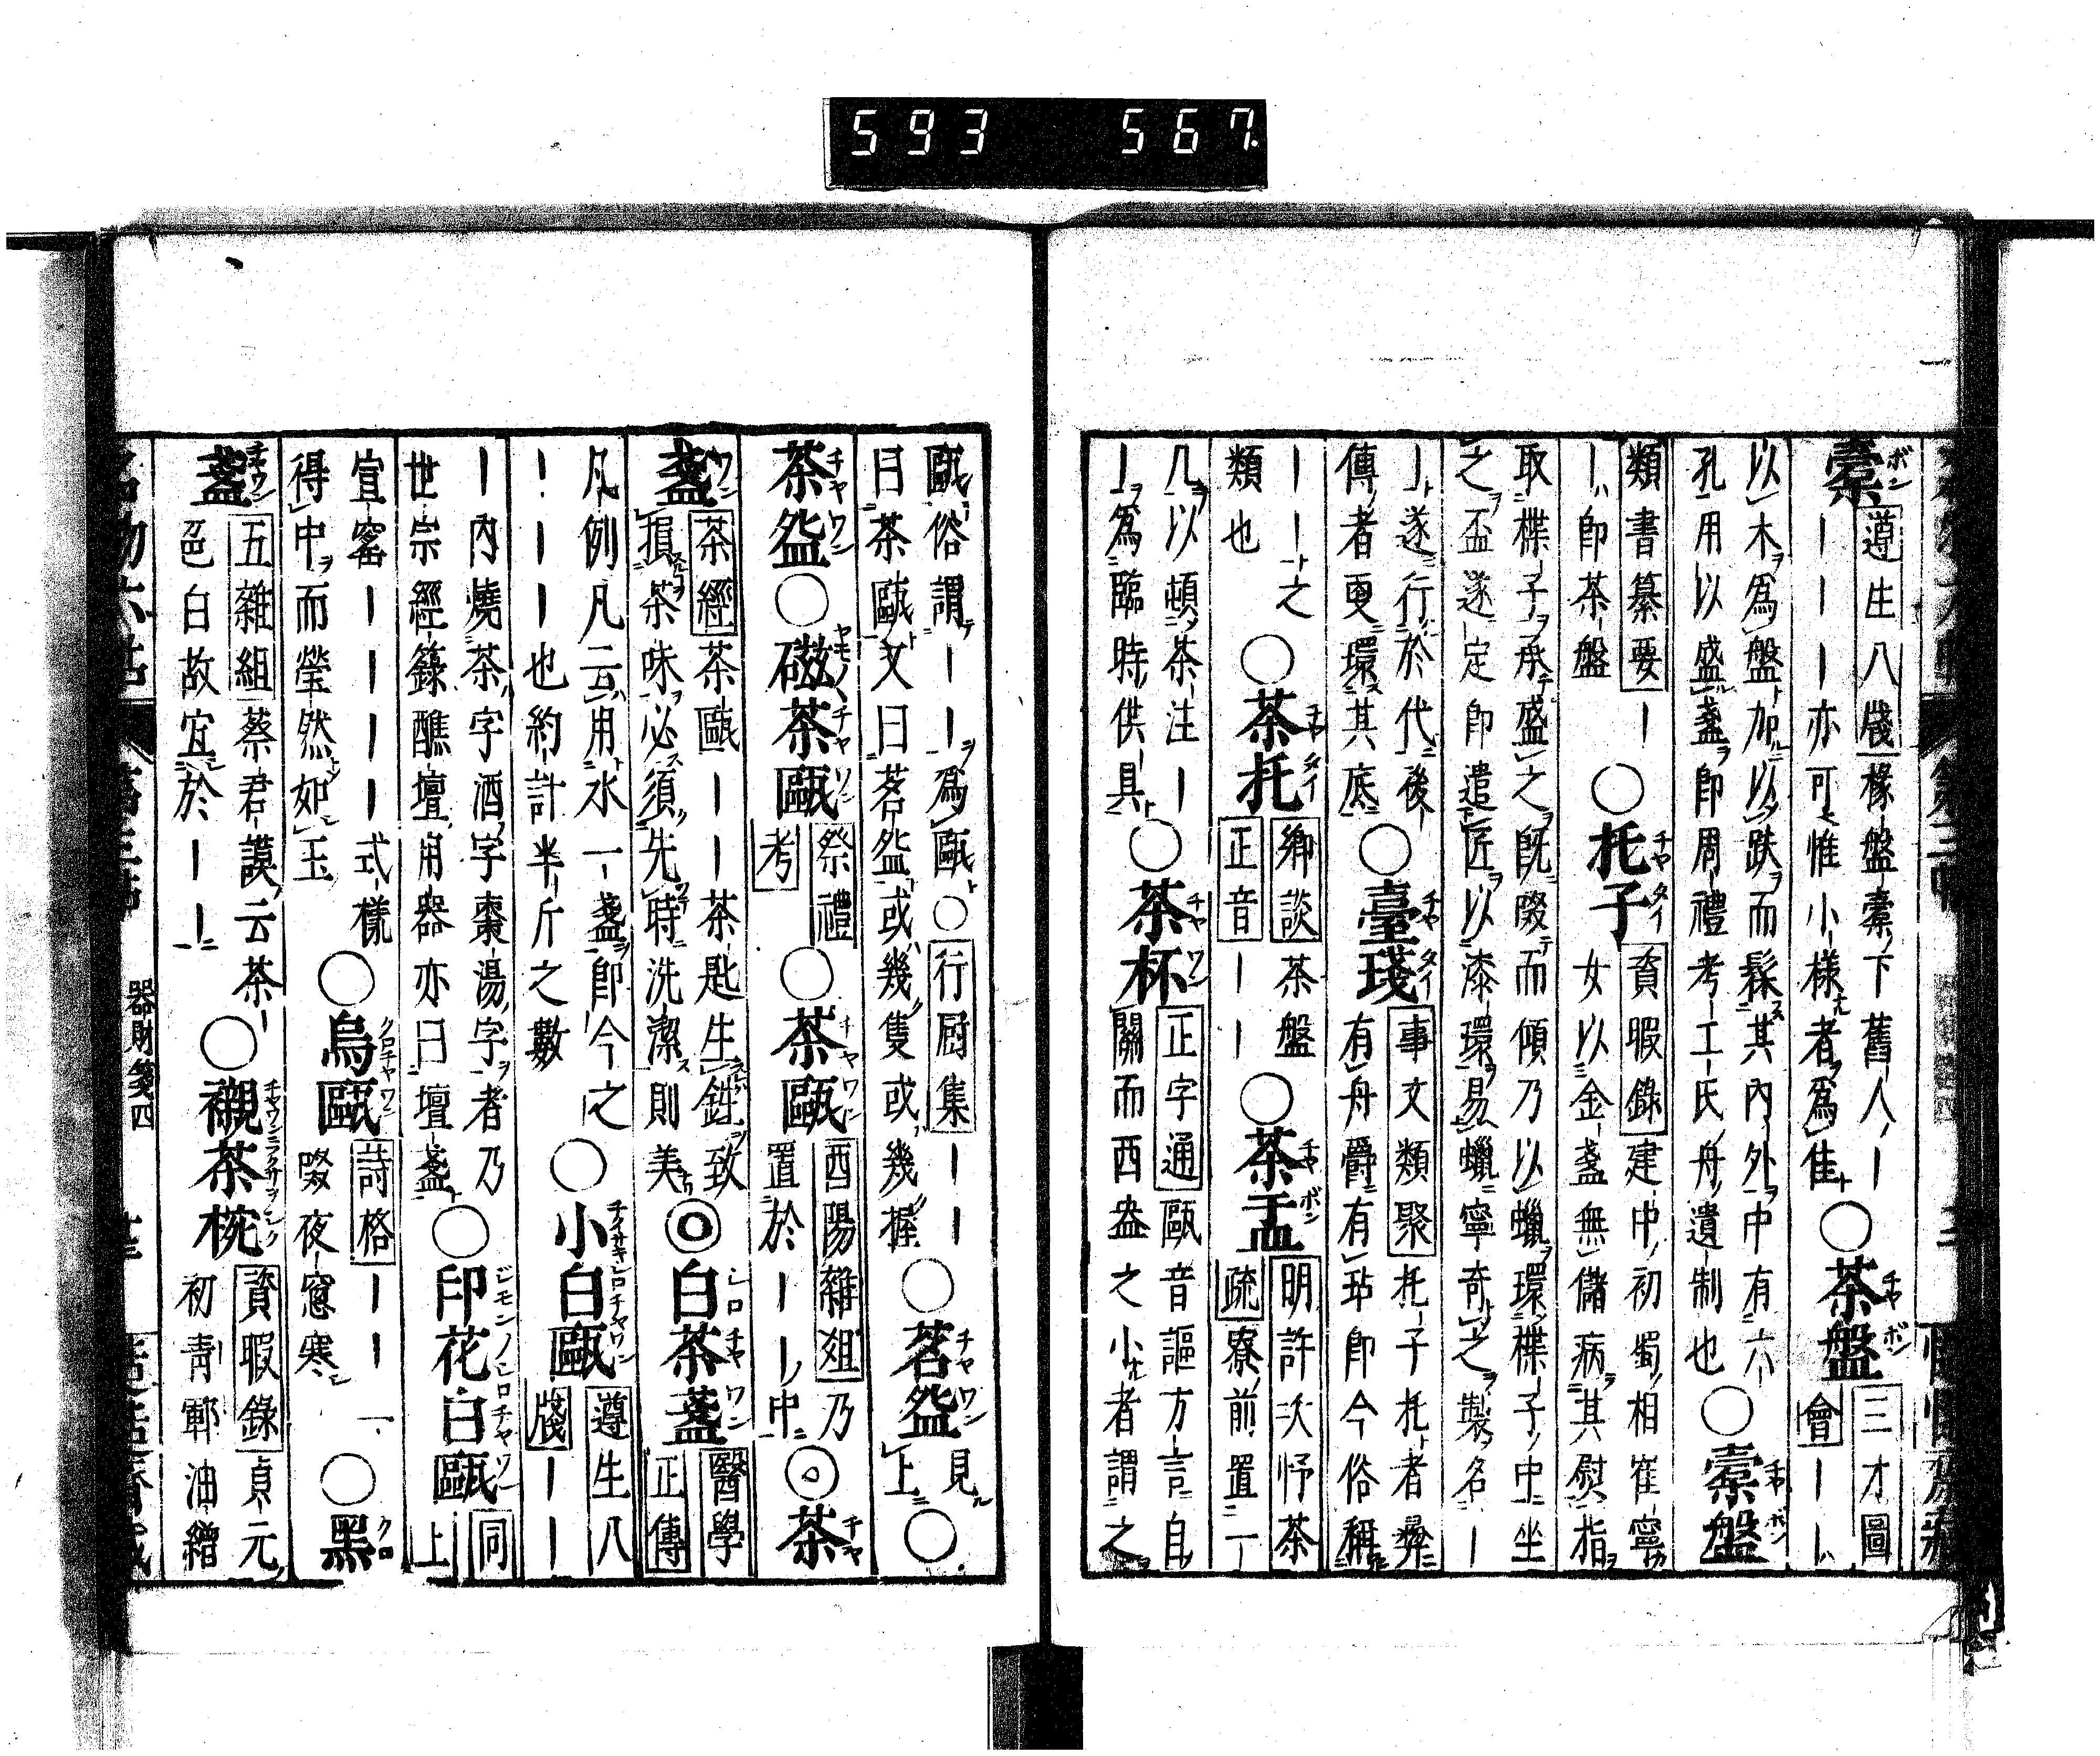 593 567
橐 遵生八牋 椽盤橐下舊人ー
ーーー亦可惟小樣者爲佳 ○茶盤 三才圖
會ーー
以木爲盤加以趺而髹其内外中有六
孔用以盛盞即周禮考工氏舟遺制也 ○橐盤
類書纂要ー
ー即茶盤 ○托子 資暇錄 建中初蜀相崔寧
女以金盞無儲病其熨指
取楪子承盛之既啜而傾乃以蠟環楪子中坐
之盃遂定即遣匠以漆環易蠟寧奇之製名ー
ー遂行於代後
傳者更環其底 ○臺琖 事文類聚 托子托者彝
有舟爵有坫即今俗稱
ーー之
類也 ○茶托 鄉談
正音 茶盤
ーー ○茶盂 明許次忬茶
疏 寮前置一
几以頓茶注ー
ー爲臨時供具 ○茶杯 正字通 甌音謳方言自
關而西盎之小者謂之
甌俗謂ーー爲甌○行厨集ーー
曰茶甌文曰茗甃或幾隻或幾握 ○茗甃 見
上 ○
茶甃 ○磁茶甌 祭禮
考 ○茶甌 酉陽雜俎 乃
置於ーー中 ◎茶
盞 茶經 茶甌ーー茶匙生鉎致
損茶味必須先時洗潔則美 ◎白茶盞 醫學
正傳
凡例凡云用水一盞即今之
ーーー也約計半斤之數 ○小白甌 遵生八
牋ーー
ー内燒茶字酒字棗湯字者乃
世宗經籙醮壇用器亦曰壇盞 ○印花白甌 同
上
宣窰ーーーー式樣
得中而瑩然如玉 ○烏甌 詩格ーー一
啜夜窓寒 ○黑
盞 五雜組 蔡君謨云茶ー
色白故宜於ーー ○襯茶椀 資暇錄 貞元
初青鄆油繒
器財箋四